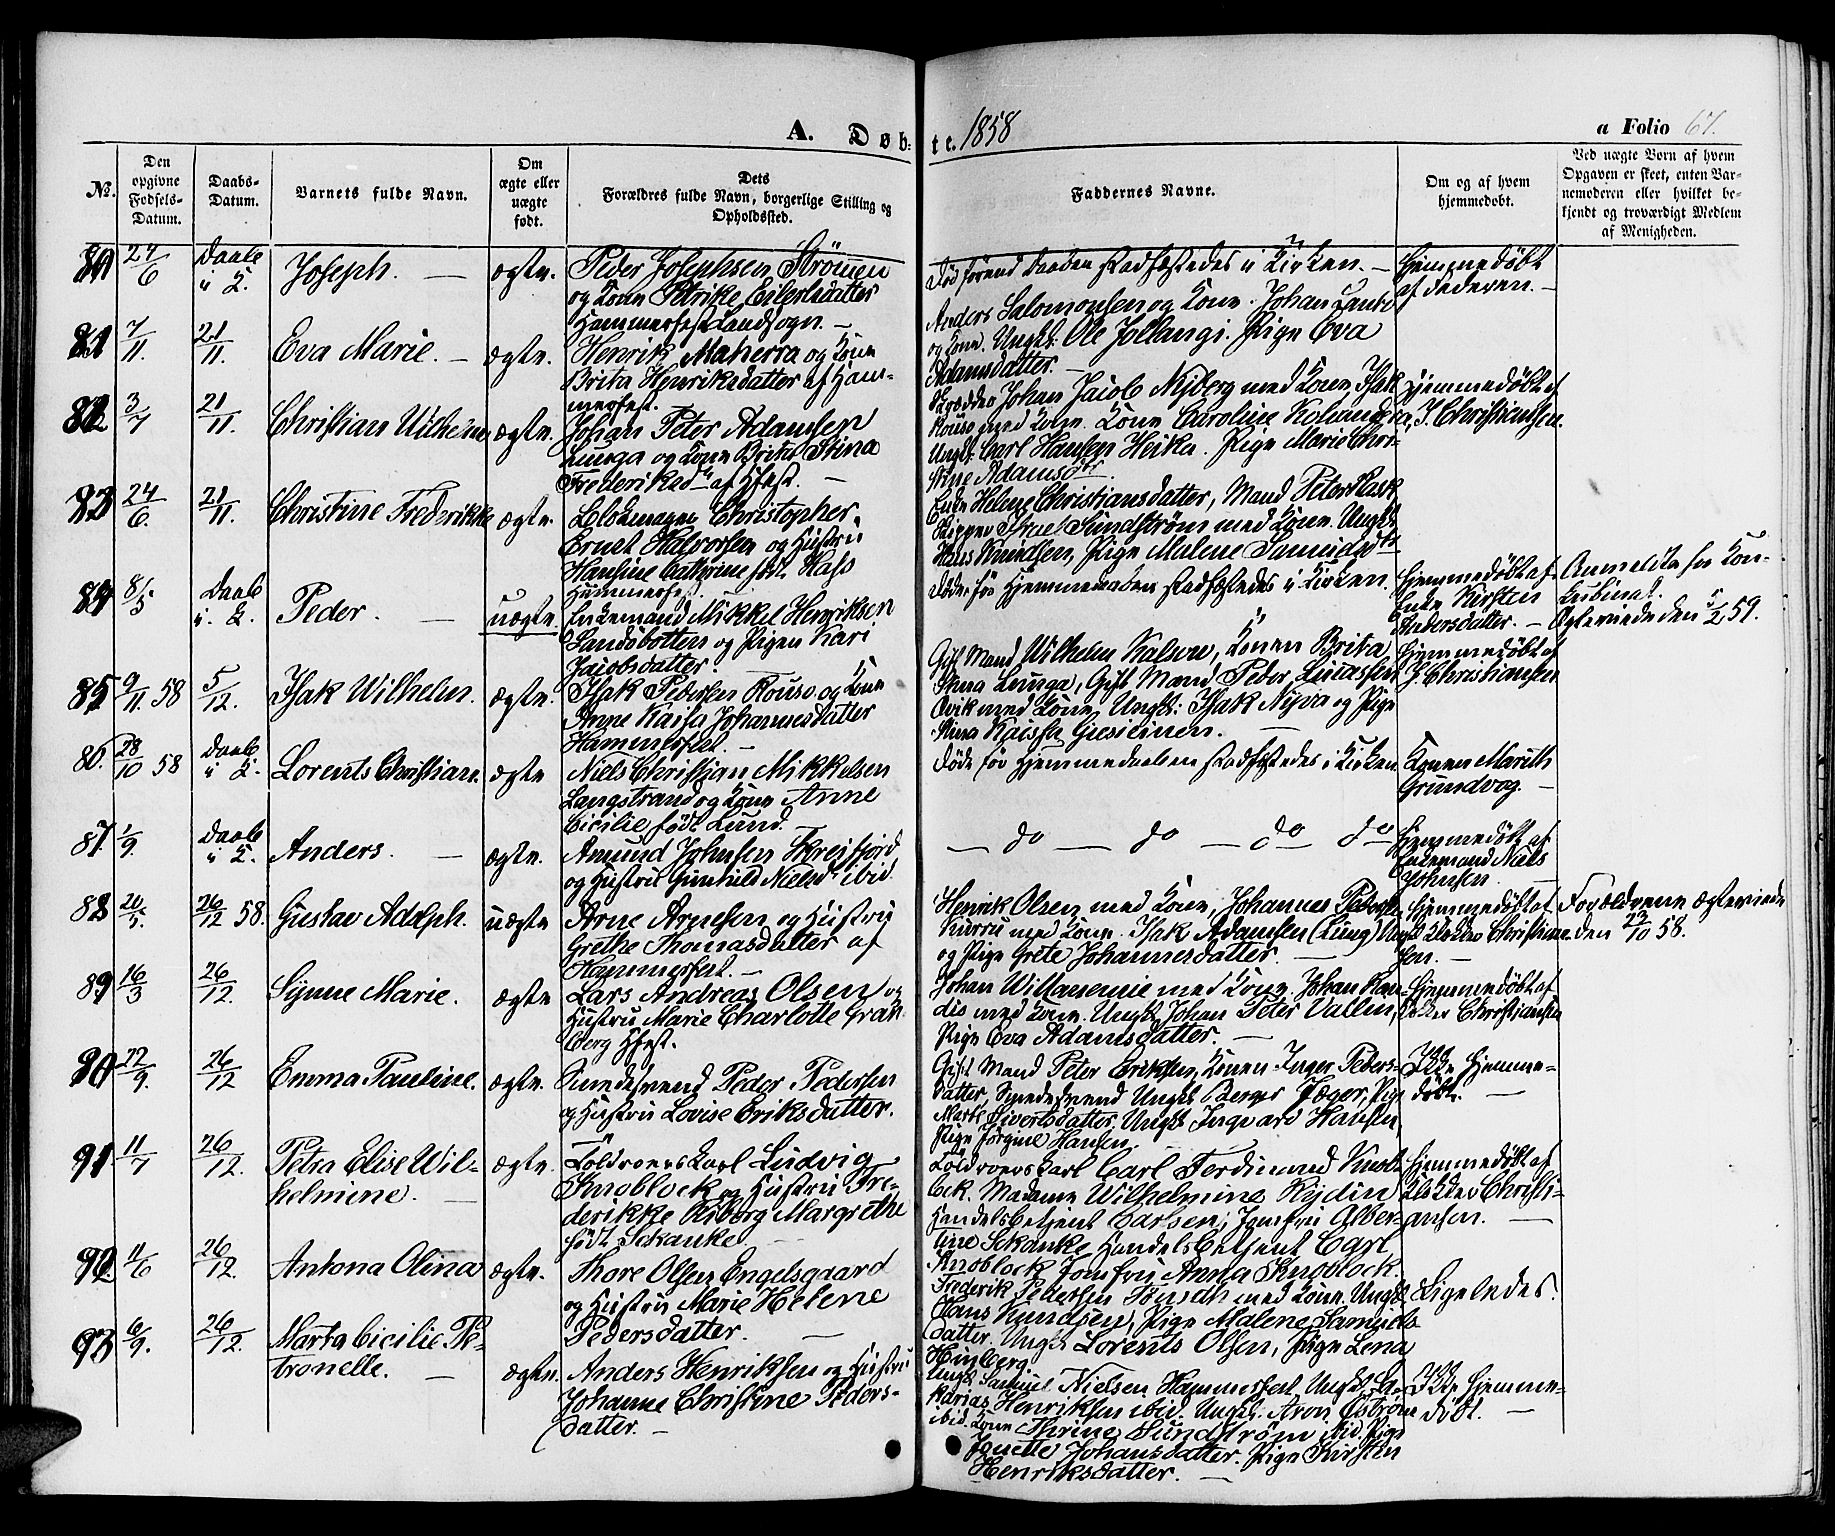 A. Døb-
te. 1858
a Folio 67.
No.
Den opgivne Fødsels-Datum.
Daabs-Datum.
Barnets fulde Navn.
Om ægte eller uægte født.
Dets
Forældres fulde Navn, borgerlige Stilling og
Opholdssted.
Faddernes Navne.
Om og af hvem hjemmedøbt.
Ved uægte Børn af hvem
Opgaven er skeet, enten Bar-
nemoderen eller hvilket be-
kjendt og troværdigt Medlem
af Menigheden.
80 24/6 Daab i K. Joseph. — ægte. Peder Josephsen Strömen
og Kone Petrike Eilertsdatter
Hammerfest Landsogn. —
Död forend Daaben stadfæstedes i Kirken. —
Hjemmedöbt
af Faderen. —
81 7/11 21/11. Eva Marie. — ægte. Henrik Maherra og Kone
Brita Henriksdatter af Ham-
merfest.
Anders Salomonsen og Kone. Johan
og Kone. Ungk. Ole Jollangi. Pige Eva
Adamsdatter. —
82 3/7 21/11. Christian Wilhelm ægte. Johan Peter Adamsen
Lunga og Kone Brita Stina
Frederiksd. af Hfest. —
Skrædder Johan Jacob Nyberg med Kone, Isak
Rouso med Kone. Kone Caroline
Ungk. Carl Hansen Heika. Pige Marie Chri-
stine Adamsdtr.
Hjemmedöbt af
J. Christiansen.
83 24/6 21/11 Christine Frederikke ægte. Christopher
Ernst Halvorsen og Hustru
Hansine Cathrine födt Hass
Hammerfest.
Enke Helene Christiansdatter, Mand Peter Rask
Skipper Israel Sundström med Kone. Ungk.
Hans Knudsen, Pige Malene Samuelsdtr
84 8/5 Daab i K. Peder. — uægte. Enkemand Mikkel Henriksen
Sandöbotten og Pigen Kari
Jacobsdatter —
Döde för Hjemmedaaben stadfæstedes i Kirken.
Hjemmedöbt af
Enke Kirsten
Andersdatter. —
Anmeldte for Kon-
kubinat.
Ægteviede den 5/2 59.
85 9/11 58 5/12. Isak Wilhelm. ægte. Isak Pedersen Rouso og Kone
Anne Kaisa Johannesdatter
Hammerfest. —
Gift Mand Wilhelm Kalsou, Konen Brita
Stina Lunga, Gift Mand Peder Lucassen
Qvik med Kone, Ungk: Isak Nyva og Pige
Stina Kaissa Giesieinen. —
Hjemmedöbt af
J. Christiansen
86. 28/10 58 Daab i K. Lorents Christian. ægte Niels Christian Mikkelsen
Langstrand og Kone Anne
Cicilie födt Lund. —
Döde för Hjemmedaaben stadfæstedes i Kirken
Konen Marith
Grundvog. —
87 1/9. Daab i K. Anders. — ægte. Amund Johnsen Kreifjord
og Hustru Gunhild Nielsd. ibid.
— do — do — do do
Hjemmedöbt af
Enkemand Niels
Johnsen —
88 20/5. 26/12 58. Gustav Adolph. uægte Arne Arnesen og Hustru
Grethe Thomasdatter af
Hammerfest. —
Henrik Olsen med Kone, Johannes Pedersen
Kurru med Kone. Isak Adamsen (Lung) Ungk
og Pige Grete Johannesdatter. —
Hjemmedöbt af
Klokker Christian-
sen. —
Forældrene ægteviede
den 23/10 58.
89 16/3 26/12. Synne Marie. ægte Lars Andreas Olsen og
Hustru Marie Charlotte Gran-
berg Hfest.
Johan Willamemie med Kone. Johan
med Kone. Ungk. Johan Peter Vallen,
Pige Eva Adamsdatter. —
Hjemmedöbt af
Klokker Christiansen
90 22/9. 26/12 Emma Pauline. ægte. Smedesvend Peder Pedersen
og Hustru Lovise Eriksdatter.
Gift Mand Peter Eriksen, Konen Inger Peders-
datter, Smedesvend Ungk. Berger Jæger, Pige
Marthe Sivertsdatter. Ungk. Ingvard Hansen,
Pige Jörgine Hansen.
Ikke Hjemme-
döbt. —
91 11/7 26/12. Petra Elise Wil-
helmine. — ægte. Toldroerskarl Ludvig
Knoblock og Hustru Fre-
derikke Margrethe
födt Schanke. —
Toldroerskarl Carl Ferdinand Knob-
lock. Madame Wilhelmine Rydin
Handelsbetjent Carlsen; Jomfru Alber-
tine Schanke, Handelsbetjent Carl
Knoblock, Jomfru Anna Knoblock.
Hjemmedöbt af
Klokker Christi-
ansen. —
92. 11/6 26/12. Antona Olina ægte. Thore Olsen Engelsgaard
og Hustru Marie Helene
Pedersdatter. —
Frederik Pedersen Tönseth med Kone. Ungk.
Hans Knudsen, Pige Malene Samuels
datter. Ungk. Lorents Olsen, Pige Lena
Hinberg
Ligeledes.
93 6/9. 26/12. Marta Cicilie Pe-
tronelle. — ægte. Anders Henriksen og Hustru
Johanne Christine Peders-
datter. —
Ungk. Samuel Nielsen Hammerfest, Ungk. Za-
karias Henriksen ibid. Ungk. Aron Öström
ibid. Kone Thrine Sundström ibid. Pige
Janette Johansdatter. Pige Kirsten
Henriksdatter. —
Ikke Hjemme-
döbt. —